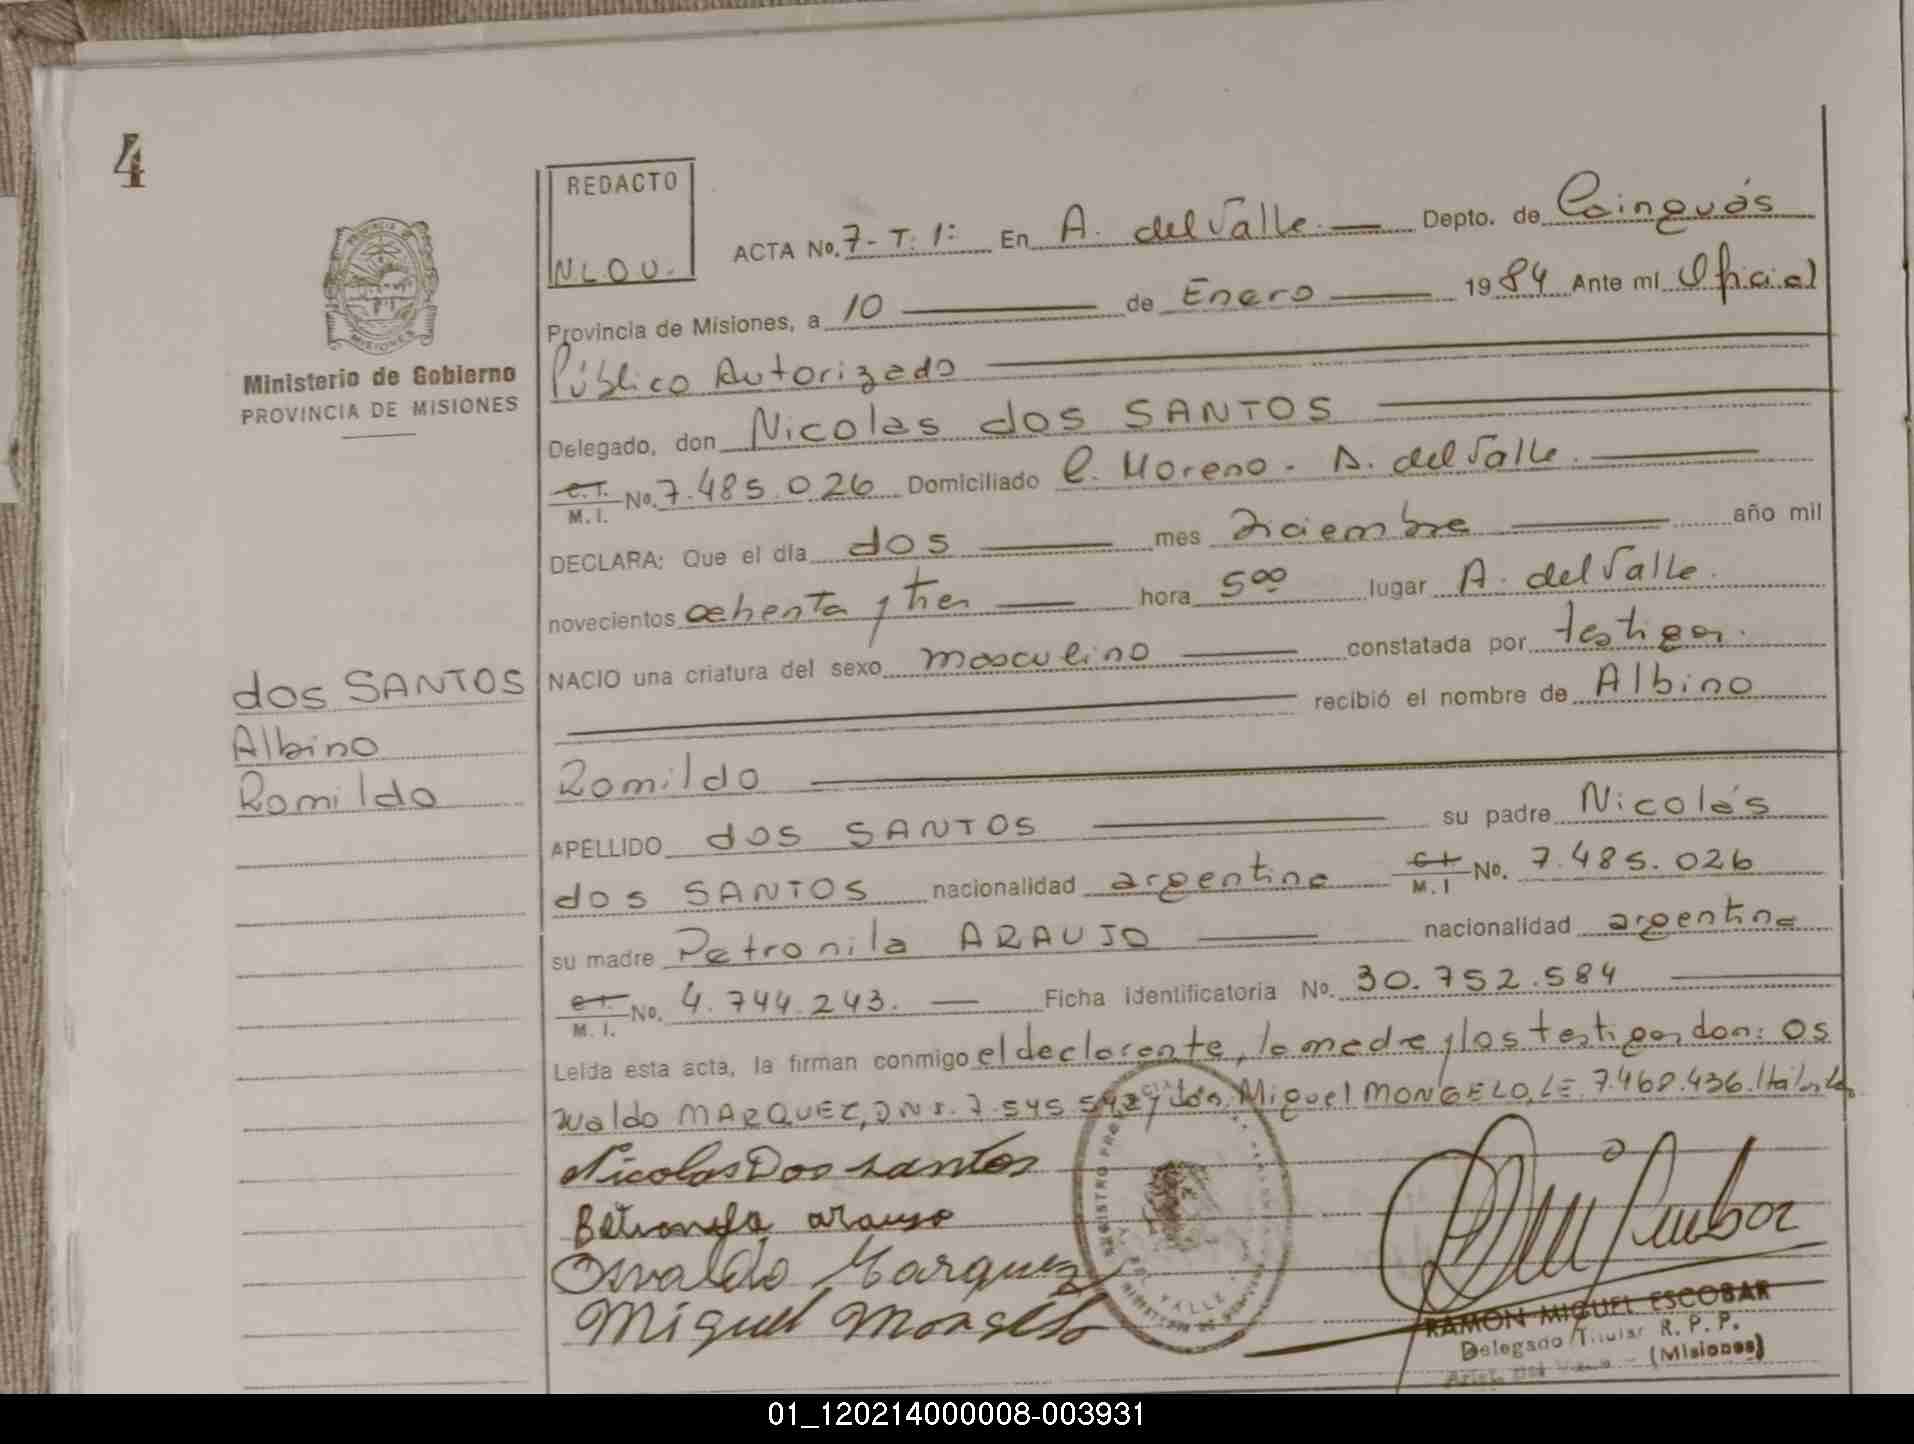 4
REDACTO
N.L.O.U.
ACTA No. 7-T. 1: En A. del Valle. Depto. de Cainguás
Provincia de Misiones, a 10 de Enero 1984 Ante mí Oficial
Ministerio de Gobierno
PROVINCIA DE MISIONES
Público Autorizado
Delegado, don Nicolas dos SANTOS
C.I. M.I. No. 7.485.026 Domiciliado C. Moreno - A. del Valle.
DECLARA: Que el día dos mes Diciembre año mil
novecientos ochenta y tres hora 5 00 lugar A. del Valle.
NACIO una criatura del sexo masculino constatada por testigos.
recibió el nombre de Albino
dos SANTOS
Albino
Romildo
Romildo
APELLIDO dos SANTOS su padre Nicolás
dos SANTOS nacionalidad argentina C.I. M.I No. 7.485.026
su madre Petronila ARAUJO nacionalidad argentina
C.I. M.I. No. 4.744.243. Ficha identificatoria No. 30.752.584
Leída esta acta, la firman conmigo el declarante, la madre y los testigos don: Os
waldo MARQUEZ, DNI. 7.545 y don Miguel MONGELO, LE. 7.468.436.
Nicolas Dos santos
arauso
Osvaldo Marquez
Miguel Mongelo
REGISTRO VALLE
RAMON MIGUEL ESCOBAR
Delegado Titular R. P. P.
(Misiones)
01_120214000008-003931